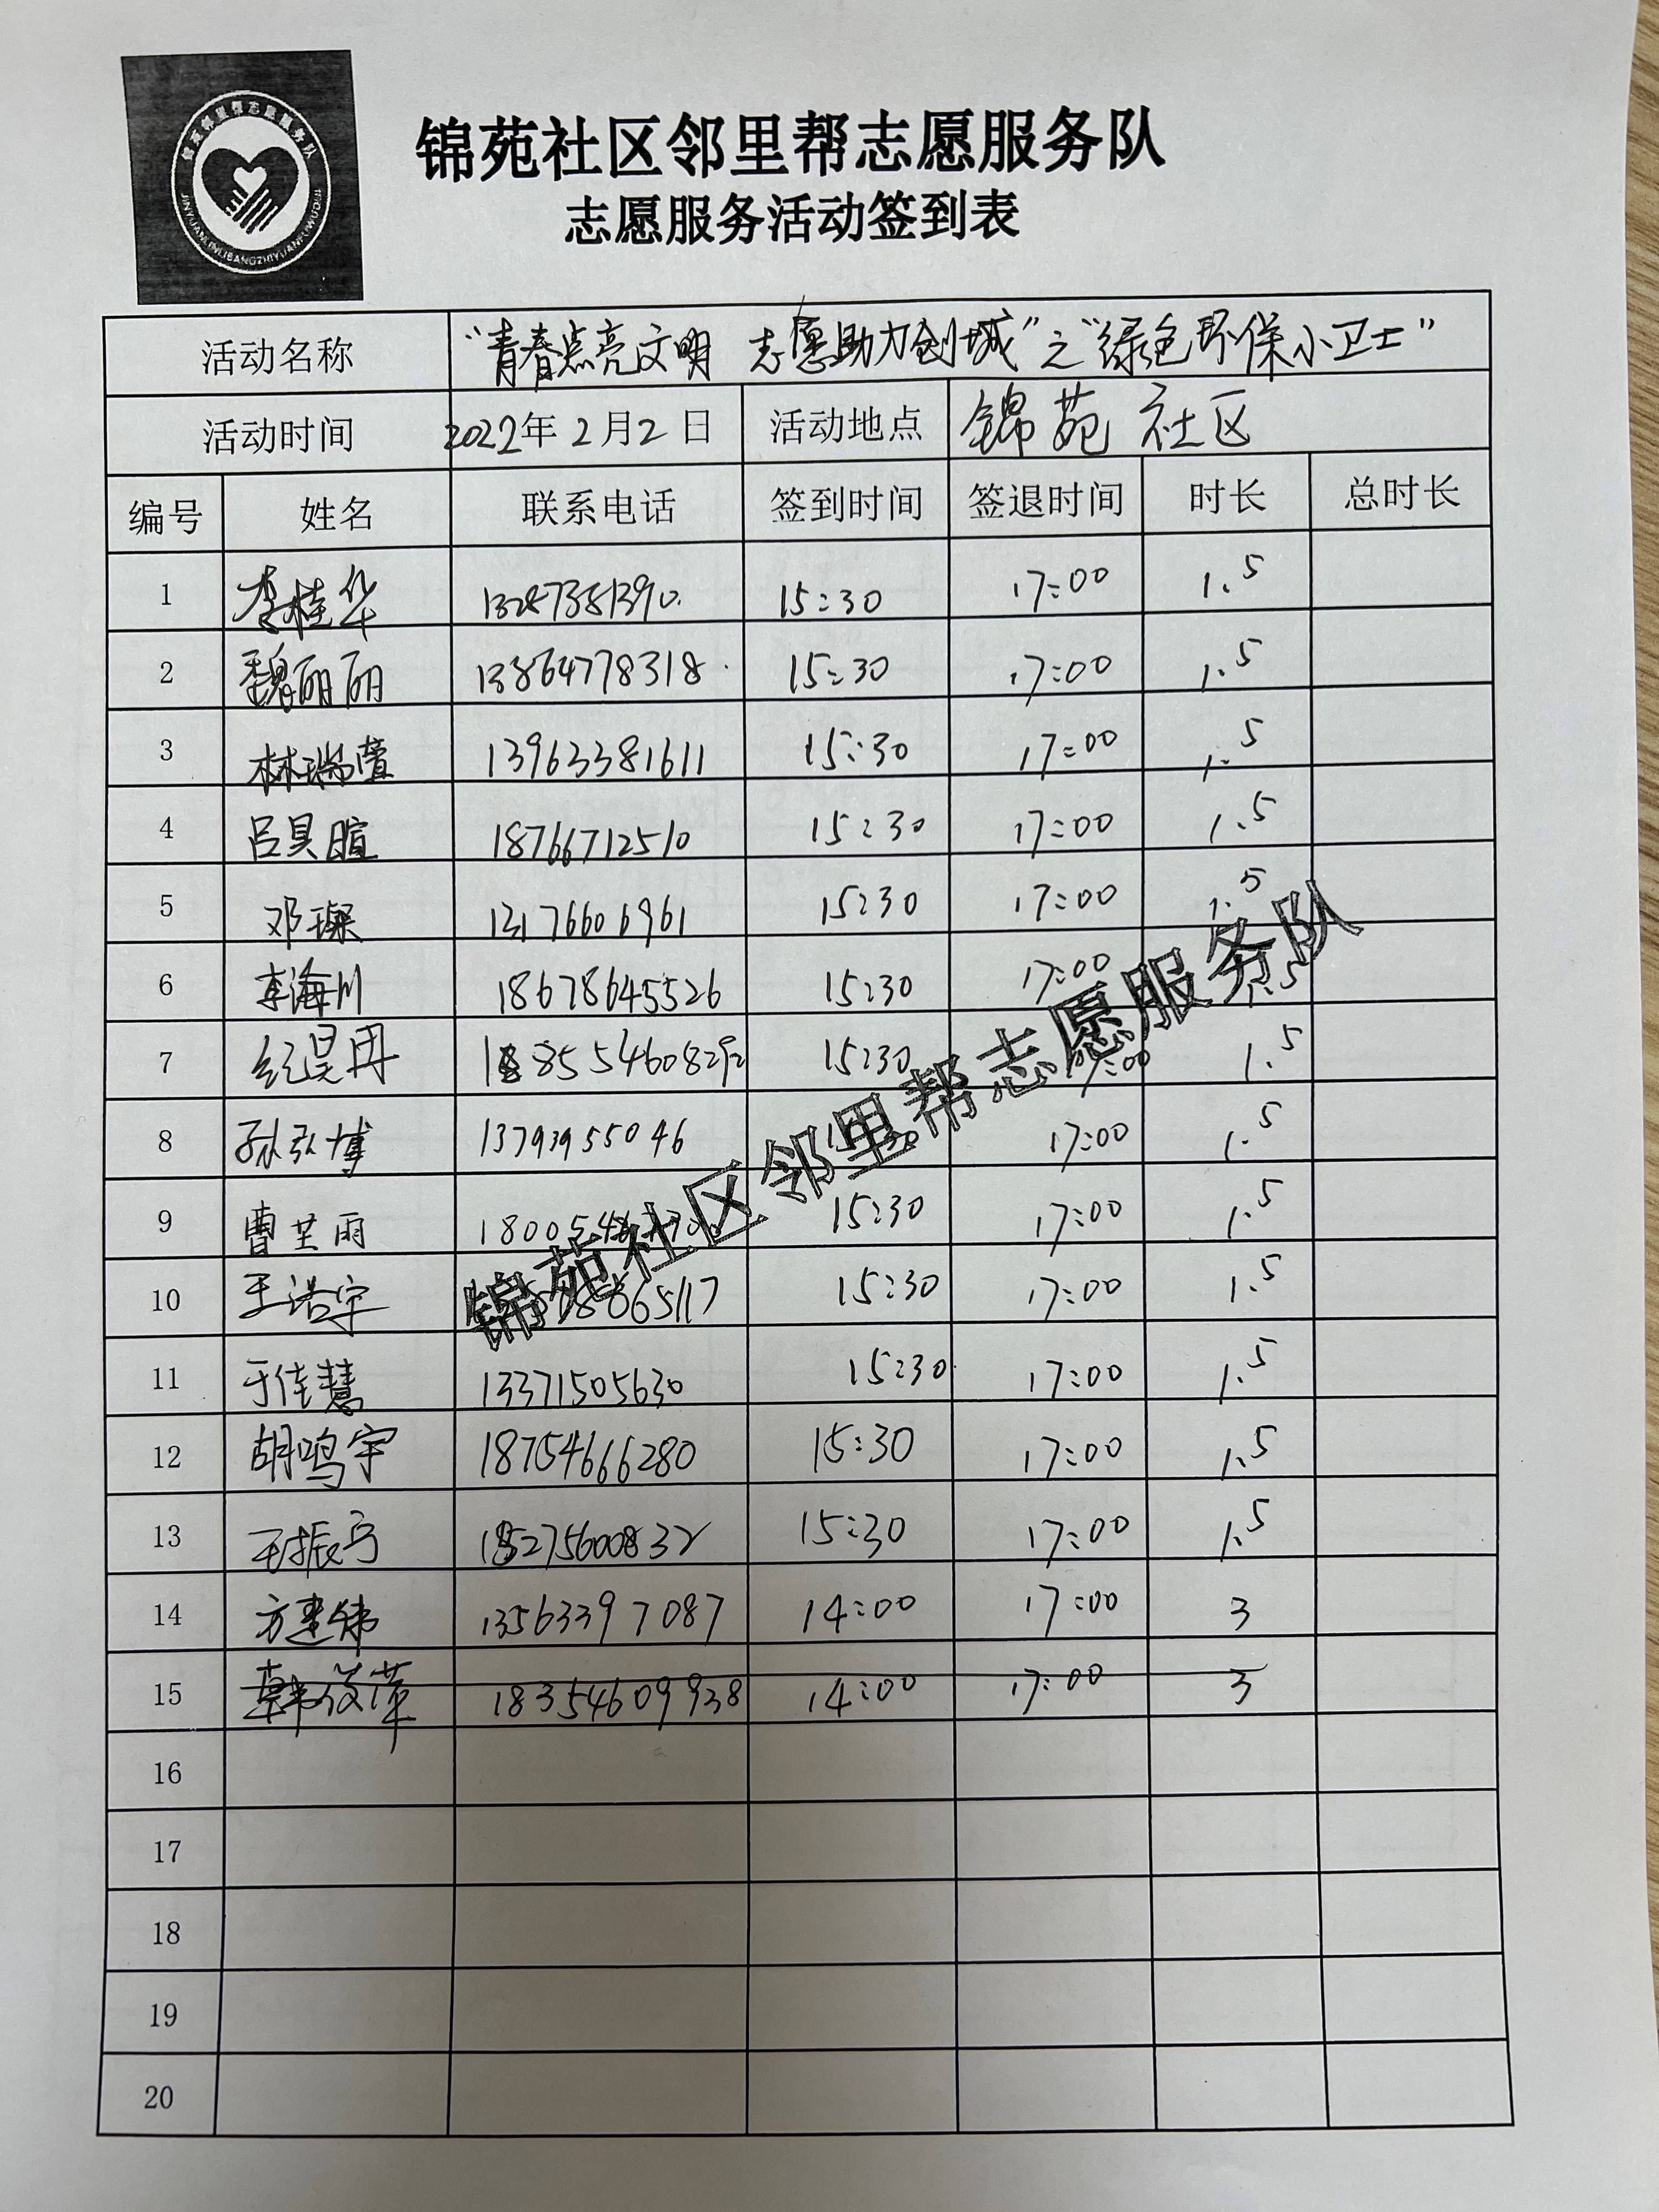 锦苑社区邻里帮志愿服务队
志愿服务活动签到表
活动名称 “青春点亮文明 志愿助力创城”之“绿色环保小卫士”
活动时间 2022年2月2日 活动地点 锦苑社区
编号 姓名 联系电话 签到时间 签退时间 时长 总时长
1 李桂华 15:30 17:00 1.5
2 魏丽丽 13864778318 15:30 17:00 1.5
3 林瑞萱 13963381611 15:30 17:00 1.5
4 吕昊暄 18766712510 15:30 17:00 1.5
5 邓琛 13176606961 15:30 17:00 1.5
6 李海川 18678645526 15:30 17:00 1.5
7 纪昊冉 15:30 17:00 1.5
8 孙弘博 13793955046 17:00 1.5
9 曹芷雨 15:30 17:00 1.5
10 王浩宇 15:30 17:00 1.5
11 于佳慧 13371505630 15:30 17:00 1.5
12 胡鸣宇 18754666280 15:30 17:00 1.5
13 王振宁 15:30 17:00 1.5
14 方建伟 13563397087 14:00 17:00 3
15 韩 18354609938 14:00 17:00 3
16
17
18
19
20
锦苑社区邻里帮志愿服务队